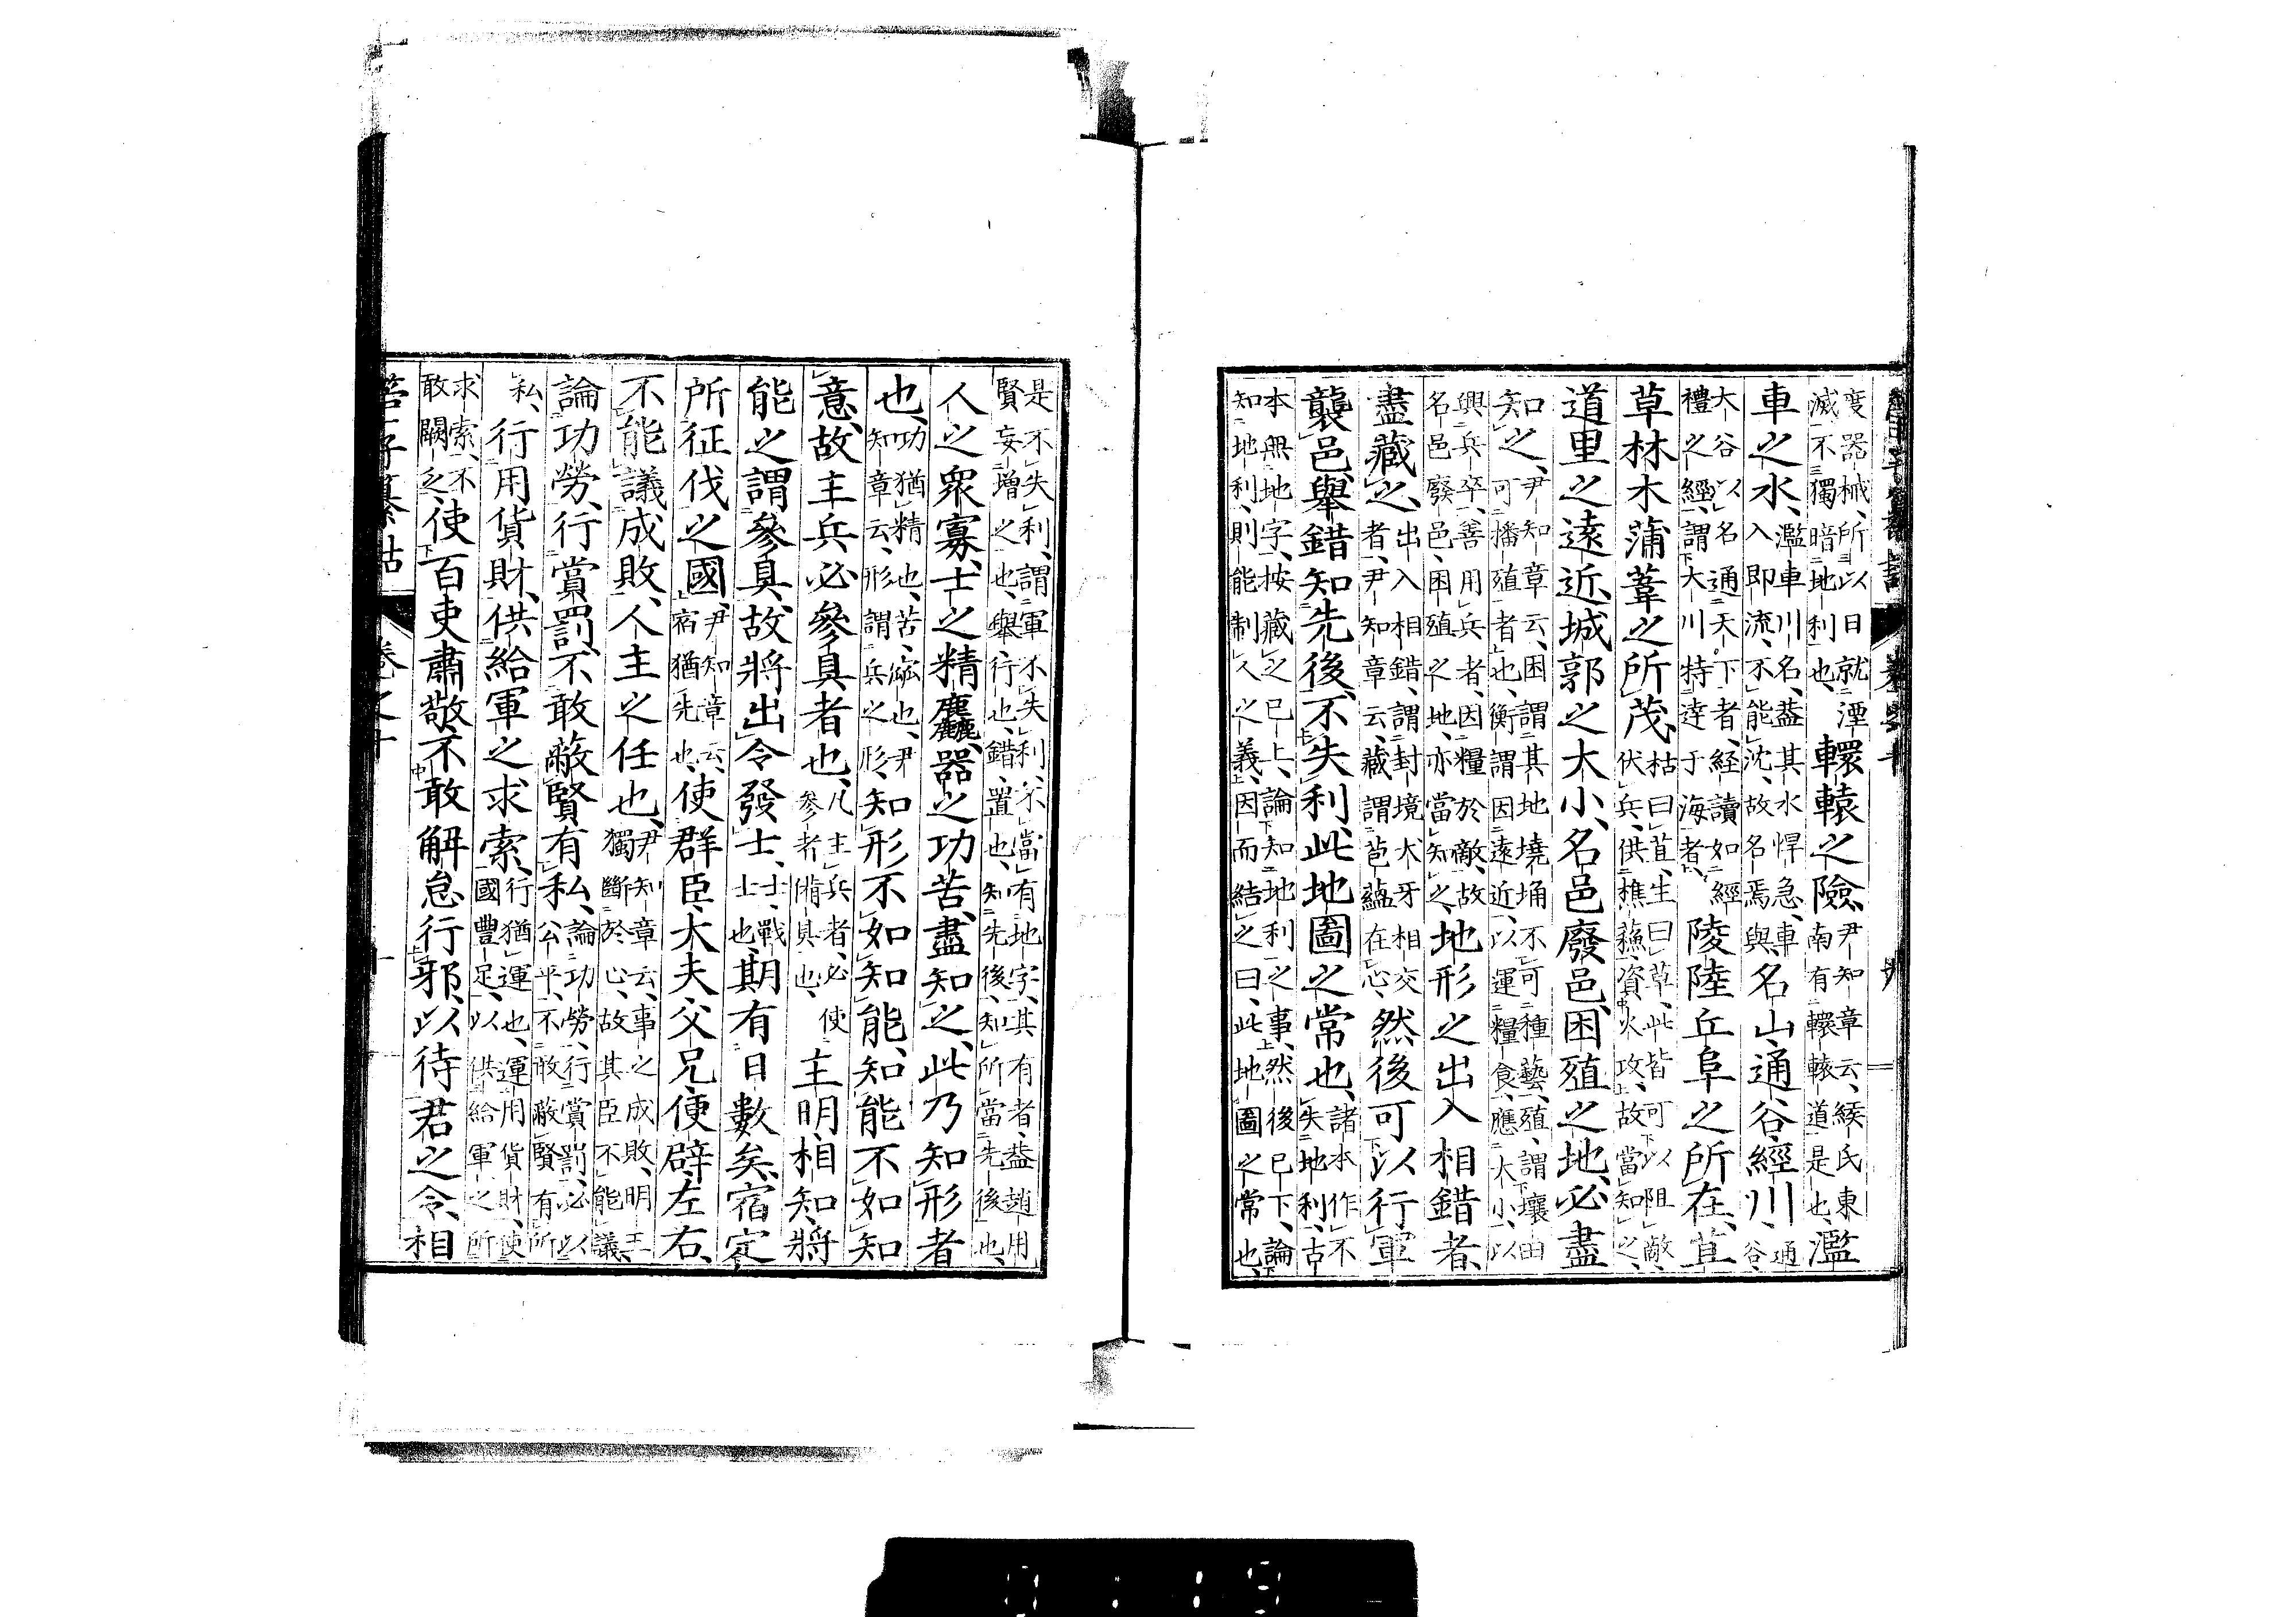 度器械、所以日就湮滅、不獨暗地利也、轘轅之險、尹知章云、緱氏東南有轘轅道是也、濫
車之水、濫車川名、盖其水悍急、車入即流、不能沈、故名焉、與名山、通谷、經川、通谷、
大谷以名通天下者、経讀如經禮之經、謂大川特達于海者、陵陸丘阜之所在、苴
草林木蒲葦之所茂、枯曰苴、生曰草、此皆可以阻敵、伏兵、供樵蘓、資火攻、故當知之、
道里之遠近、城郭之大小、名邑廢邑、困殖之地、必盡
知之、尹知章云、困謂其地墝埆不可種藝、殖謂壤田可播殖者也、衡謂因遠近、以運糧食、應大小、以
興兵卒、善用兵者、因糧於敵、故名邑廢邑、困殖之地、亦當知之、地形之出入相錯者、
盡藏之、出入相錯、謂封境犬牙相交者、尹知章云、藏謂苞蘊在心、然後可以行軍
襲邑、舉錯知先後、不失利、此地圖之常也、諸本作不失地利、古
本無地字、按藏之已上、論知地利之事、然後已下、論知地利、則能制人之義、因而結之曰、此地圖之常也、
是不失利、謂軍不失利、不當有地字、其有者、盖趙用賢妄增之也、舉行也、錯置也、知先後、知所當先後也、
人之衆寡、士之精麤、器之功苦、盡知之、此乃知形者
也、功猶精也、苦、窳也、尹知章云、形謂兵之形、知形不如知能、知能不如知
意、故主兵必參具者也、凡主兵者、必參者備具也、使主明、相知、將
能之謂參具、故將出令發士、士、戰士也、期有日數矣、宿定
所征伐之國、尹知章云、宿猶先也、使群臣、大夫父兄便辟左右、
不能議成敗、人主之任也、尹知章云、事之成敗、明王獨斷於心、故其臣不能議、
論功勞、行賞罰、不敢蔽賢有私、論功勞、行賞罰、必以公平、不敢蔽賢有所
私、行用貨財、供給軍之求索、行猶運也、運用貨財、使國豐足、以供給軍之所
求索、不敢闕乏、使百吏肅敬、不敢解怠行邪、以待君之令、相
管子纂詁 卷之十